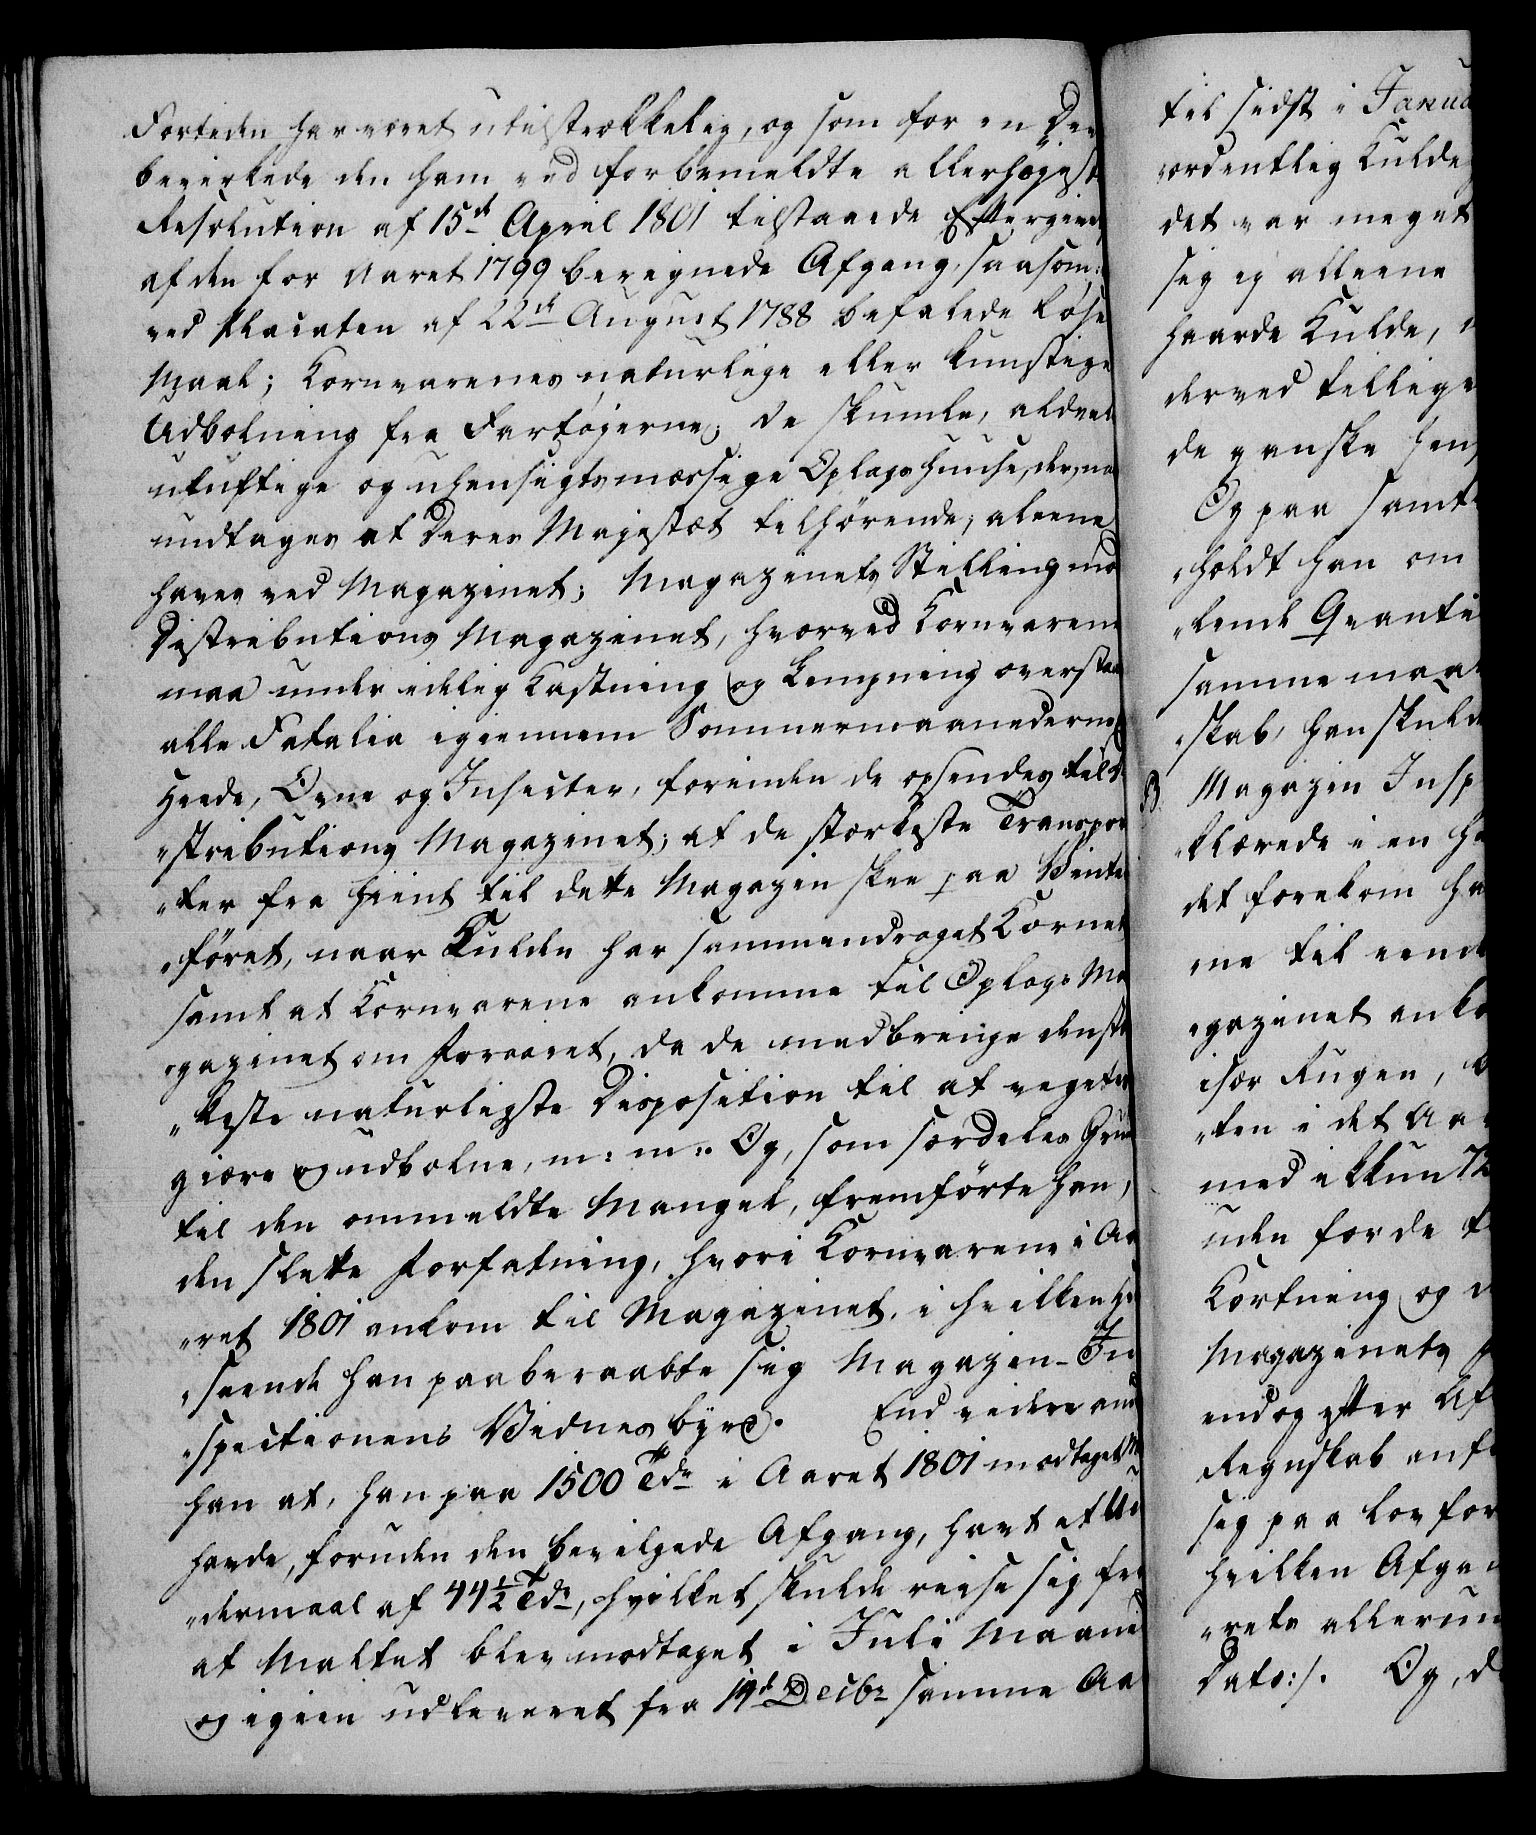 Forteden har været utilstrækkelig, og som for en Dee
beviskede den ham ved forbemeldte allerhöjest
Resolution af 15de April 1801 tilstaaede Eftergive
af den for Aaret 1799 beregnede Afgang, saasom:
ved Placaten af 22de August 1788 befalede Löse
Maal; Kornvarenes naturlige eller kunstige
Udbolning fra Fartöjerne; de skumle, aldvel
uluftige og uhensigtsmæssige Oplags Huuse, der, na
undtages et Deres Majestæt tilhörende, aleene
haves ved Magazinet; Magazinets Stilling mod
Distributions Magazinet, hvorved Kornvarene
maa under idelig Kastning og Lempning overstaae
alle Fatalia igiennem Sommermaanederne
Heede, Orme og Insecter, forinden de opsendes til D
„stributions Magazinet; at de stærkeste Transpor
„ter fra hient til dette Magazin skee paa Vinter
„föret, naar Kulden har sammendraget Kornet
samt at Kornvarene ankomme til Oplags Ma
„gazinet om Foraaret, da de medbringe den stæ
„keste naturligste Disposition til at vegeter
giære og udbolne, m: m:. Og, som særdeles Grund
til den ommeldte Mangel, fremförte han,
den slette Forfatning, hvori Kornvarene i Aa
„ret 1801 ankom til Magazinet, i hvilken He
„seende han paaberaabte sig Magazin-In
„spectionens Vidnesbyrd. End videre and
han at, han paa 1500 Tdr i Aaret 1801 modtaget M
havde, foruden den bevilgede Afgang, havt et Un
„dermaal af 44½ Tdr, hvilket skulde reise sig fra
at Maltet blev modtaget i Juli Maaned
og igien udleveret fra 14de Decbr samme Aa
til sidst i Janua
„ordentlig Kulde
det var meget
sig ej alleene
haarde Kulde,
derved tillige
de ganske hen
Og paa samt
„holdt han om
„lende Qvanti
samme maa
„skab, han skuld
Magazin Insp
„klærede i en
det forekom ha
„ne til eende
„gazinet anko
især Rugen,
„ten i det Aa
med ikkun 72
uden for de
Kortning og
Magazinets
endog efter Af
Regnskab anf
sig paa Lov for
hvilken Afga
„rets allerun
Dato:/. Og, d